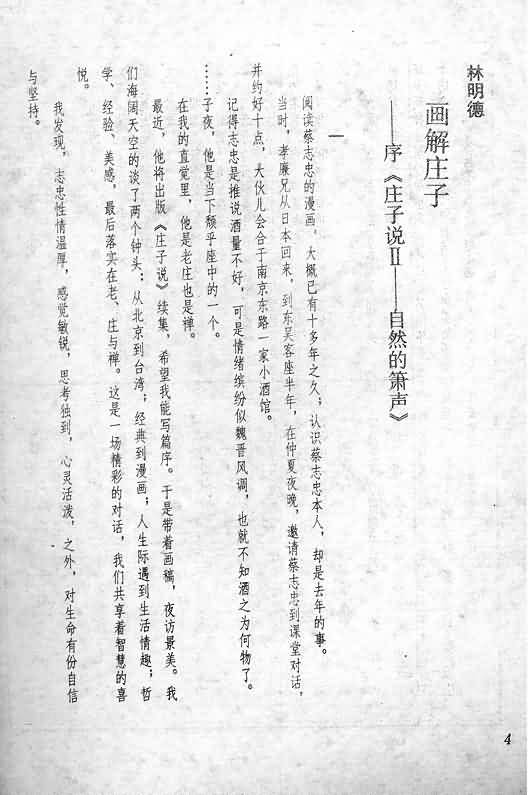 林明德
画解庄子
——序《庄子说Ⅱ——自然的箫声》
一
阅读蔡志忠的漫画，大概已有十多年之久；认识蔡志忠本人，却是去年的事。
当时，孝廉兄从日本回来，到东吴客座半年，在仲夏夜晚，邀请蔡志忠到课堂对话，
并约好十点，大伙儿会合于南京东路一家小酒馆。
记得志忠是推说酒量不好，可是情绪缤纷似魏晋风调，也就不知酒之为何物了。
……
子夜，他是当下颓乎座中的一个。
在我的直觉里，他是老庄也是禅。
最近，他将出版《庄子说》续集，希望我能写篇序。于是带着画稿，夜访景美。我
们海阔天空的谈了两个钟头：从北京到台湾；经典到漫画；人生际遇到生活情趣；哲
学、经验、美感，最后落实在老、庄与禅。这是一场精彩的对话，我们共享着智慧的喜
悦。
我发现，志忠性情温厚，感觉敏锐，思考独到，心灵活泼，之外，对生命有份自信
与坚持。
4